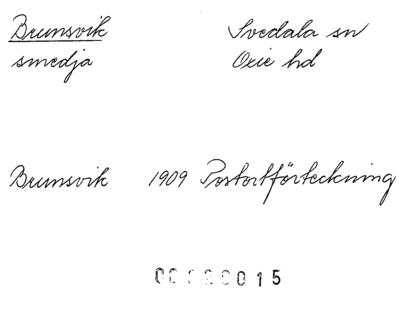 Brunsvik Svedala sn
smedja Oxie hd
Brunsvik 1909 Postortförteckning